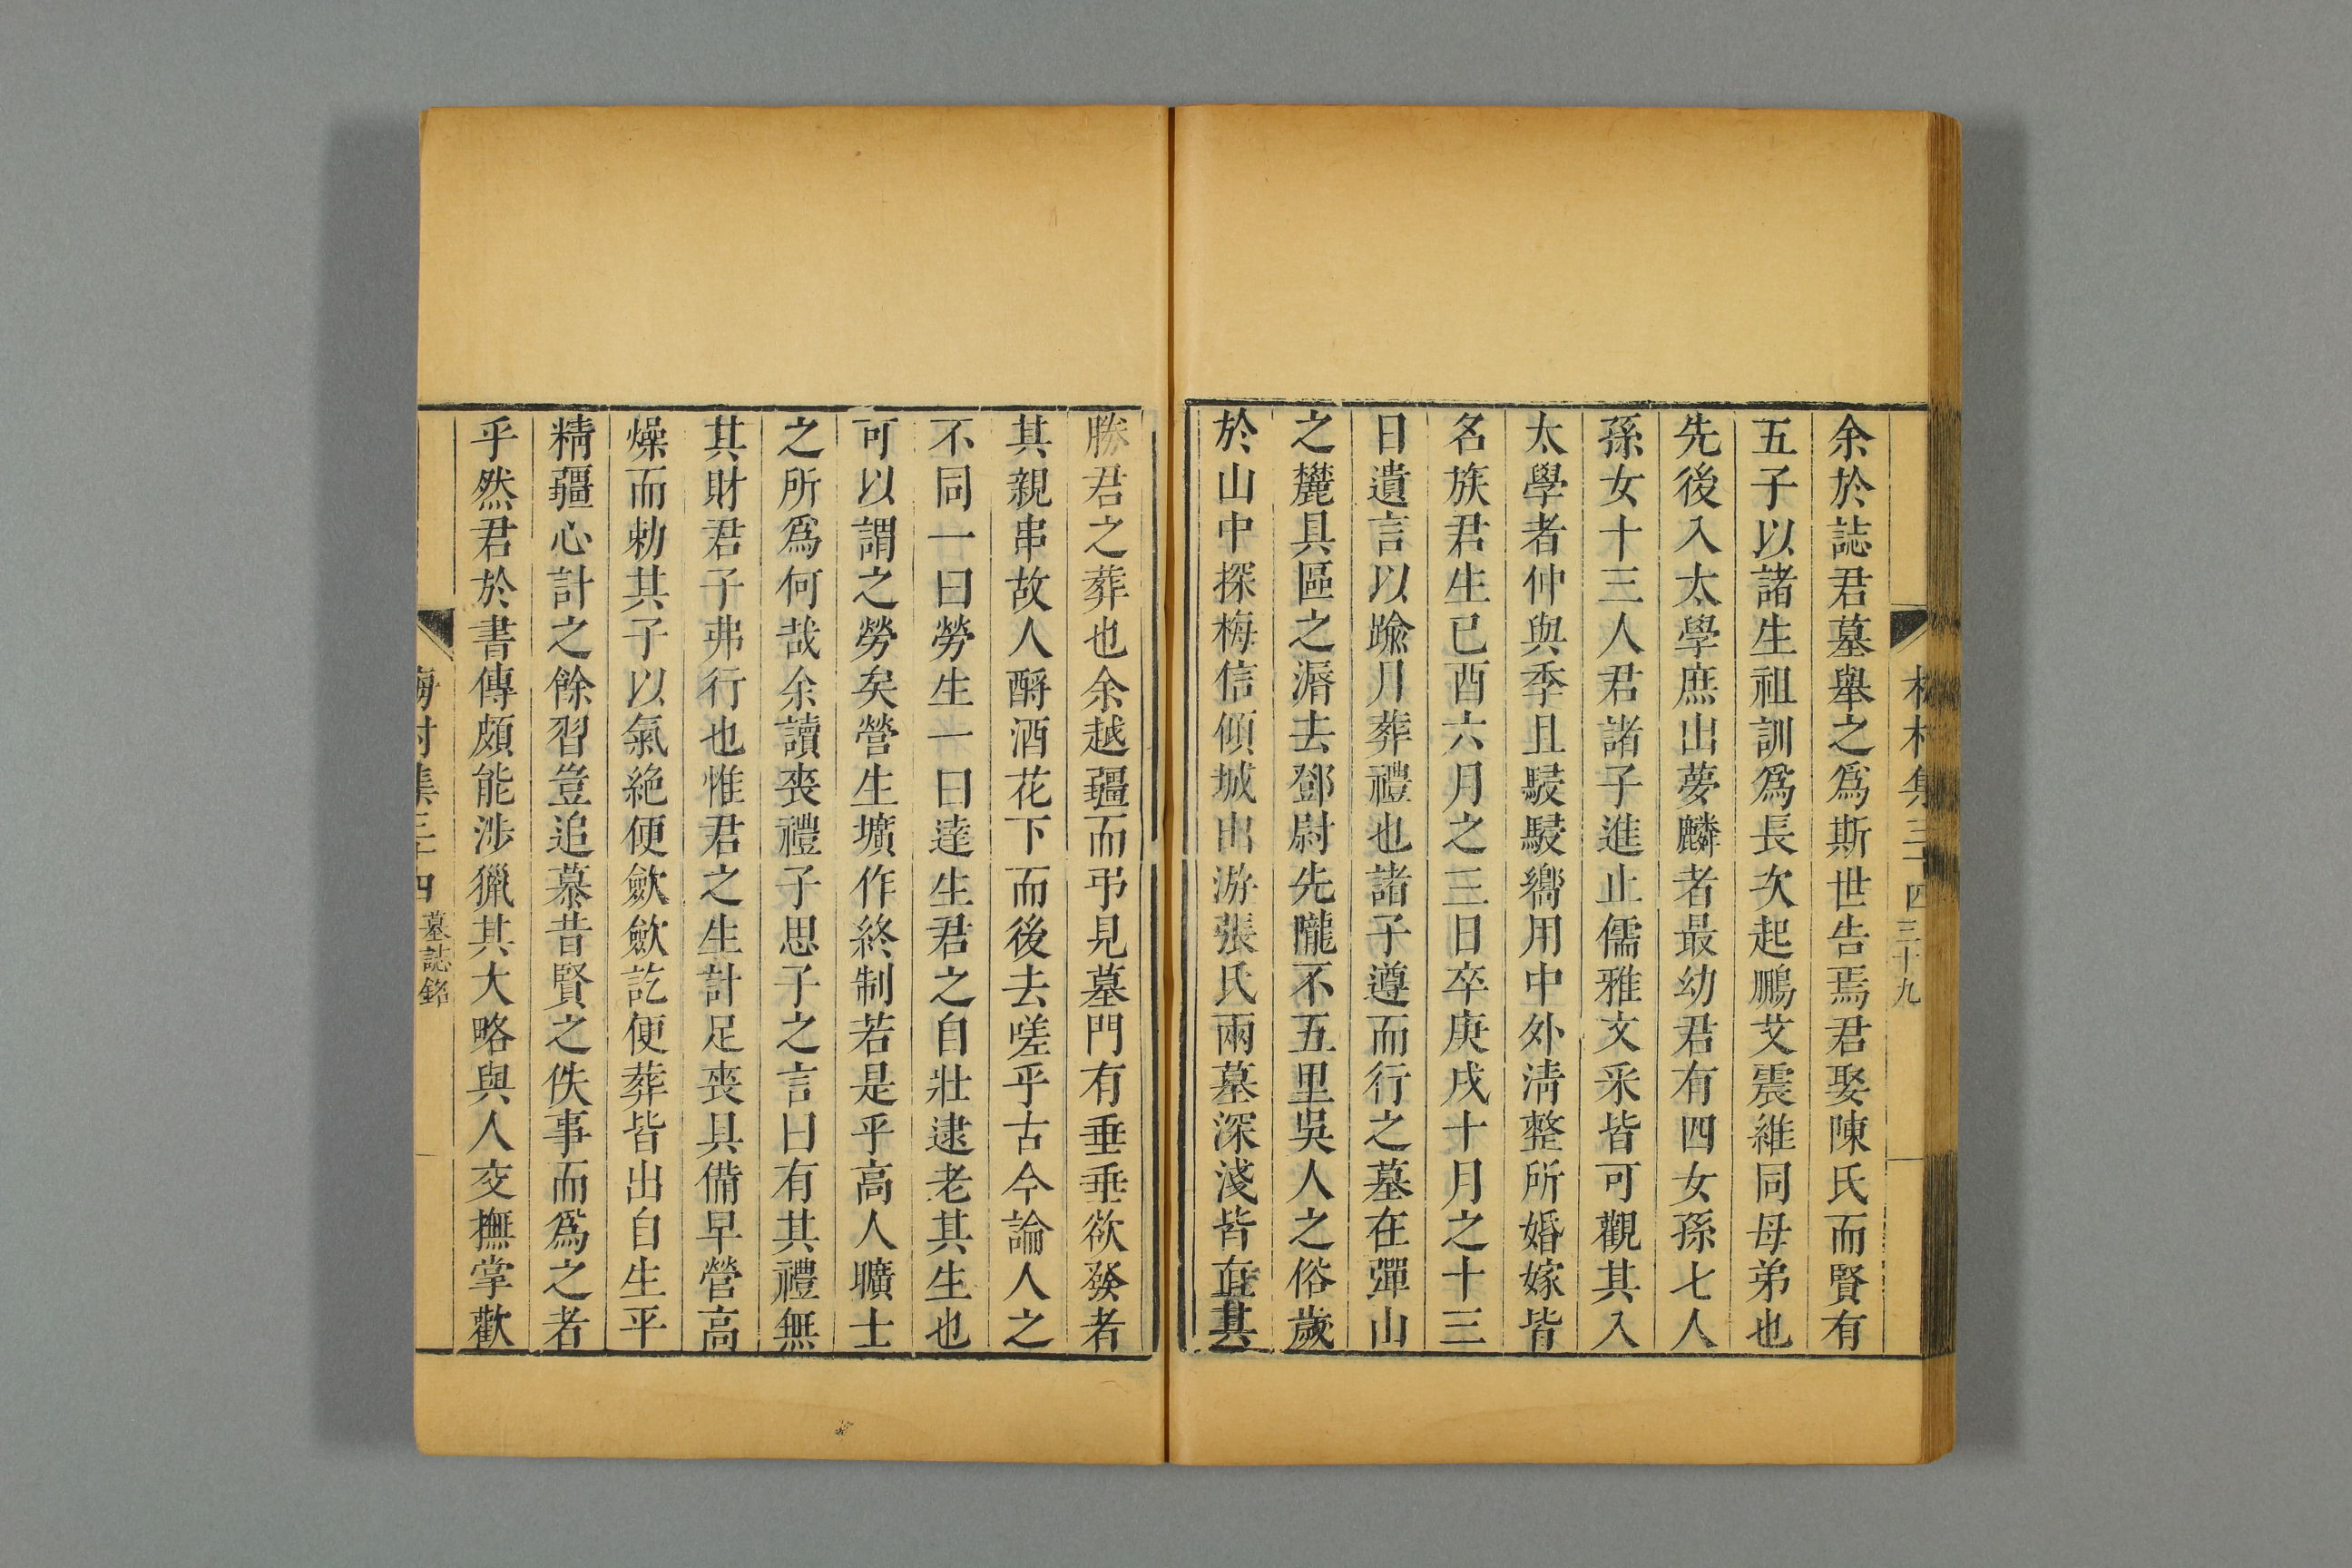 梅村集三十四 三十九
余於誌君墓舉之爲斯世告焉君娶陳氏而賢有
五子以諸生祖訓爲長次起鵬艾震維同母弟也
先後入太學庶出夢麟者最幼君有四女孫七人
孫女十三人君諸子進止儒雅文采皆可觀其入
太學者仲與季且駸駸嚮用中外淸整所婚嫁皆
名族君生已酉六月之三日卒庚戌十月之十三
日遺言以踰月葬禮也諸子遵而行之墓在彈山
之麓具區之漘去鄧尉先隴不五里吳人之俗歲
於山中探梅信傾城出游張氏兩墓深淺皆在其
勝君之葬也余越疆而弔見墓門有垂垂欲發者
其親串故人酹酒花下而後去嗟乎古今論人之
不同一曰勞生一曰達生君之自壯逮老其生也
可以謂之勞矣營生壙作終制若是乎高人曠士
之所爲何哉余讀喪禮子思子之言曰有其禮無
其財君子弗行也惟君之生計足喪具備早營高
燥而勑其子以氣絶便斂斂訖便葬皆出自生平
精疆心計之餘習豈追慕昔賢之佚事而爲之者
乎然君於書傳頗能涉獵其大略與人交撫掌歡
梅村集三十四 墓誌銘